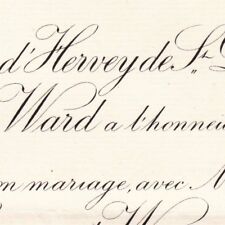 d'Hervey de St
Ward a l'honneu
on mariage, avec M